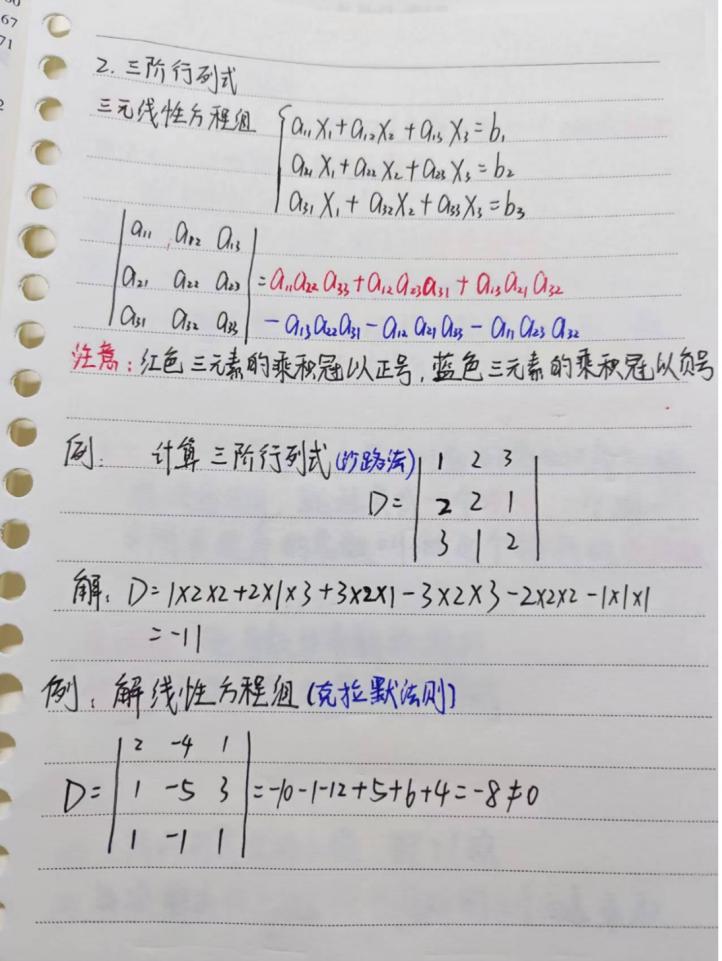 67
71
2
2. 三阶行列式
三元线性方程组 { a₁₁x₁+a₁₂x₂+a₁₃x₃=b₁
a₂₁x₁+a₂₂x₂+a₂₃x₃=b₂
a₃₁x₁+a₃₂x₂+a₃₃x₃=b₃
| a₁₁ a₁₂ a₁₃ |
| a₂₁ a₂₂ a₂₃ | =a₁₁a₂₂a₃₃+a₁₂a₂₃a₃₁+a₁₃a₂₁a₃₂
| a₃₁ a₃₂ a₃₃ | -a₁₃a₂₂a₃₁-a₁₂a₂₁a₃₃-a₁₁a₂₃a₃₂
注意:红色三元素的乘积冠以正号,蓝色三元素的乘积冠以负号
例: 计算三阶行列式(沙路法) | 1 2 3 |
D= | 2 2 1 |
| 3 1 2 |
解:D=1×2×2+2×1×3+3×2×1-3×2×3-2×2×2-1×1×1
=-11
例:解线性方程组(克拉默法则)
| 2 -4 1 |
D= | 1 -5 3 | =-10-1-12+5+6+4=-8≠0
| 1 -1 1 |